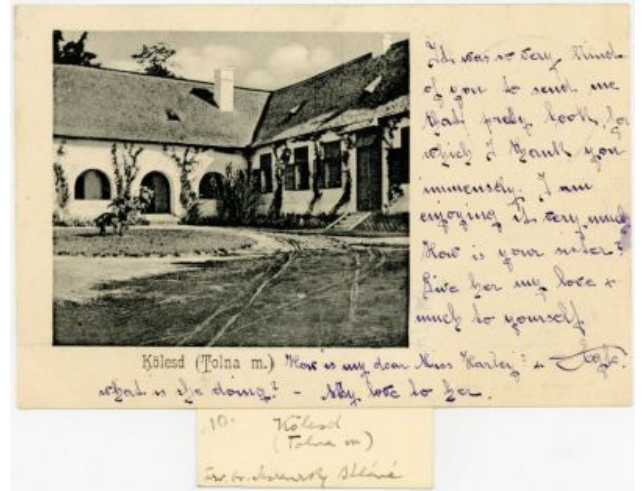 It was so very kind
of you to send me
that pretty book, for
which I thank you
immensely. I am
enjoying it very much
How is your sister?
Give her my love &
much to yourself
Kölesd (Tolna m.) How is my dear Miss Harley? &
what is she doing? - My love to her.
10. Kölesd
(Tolna m)